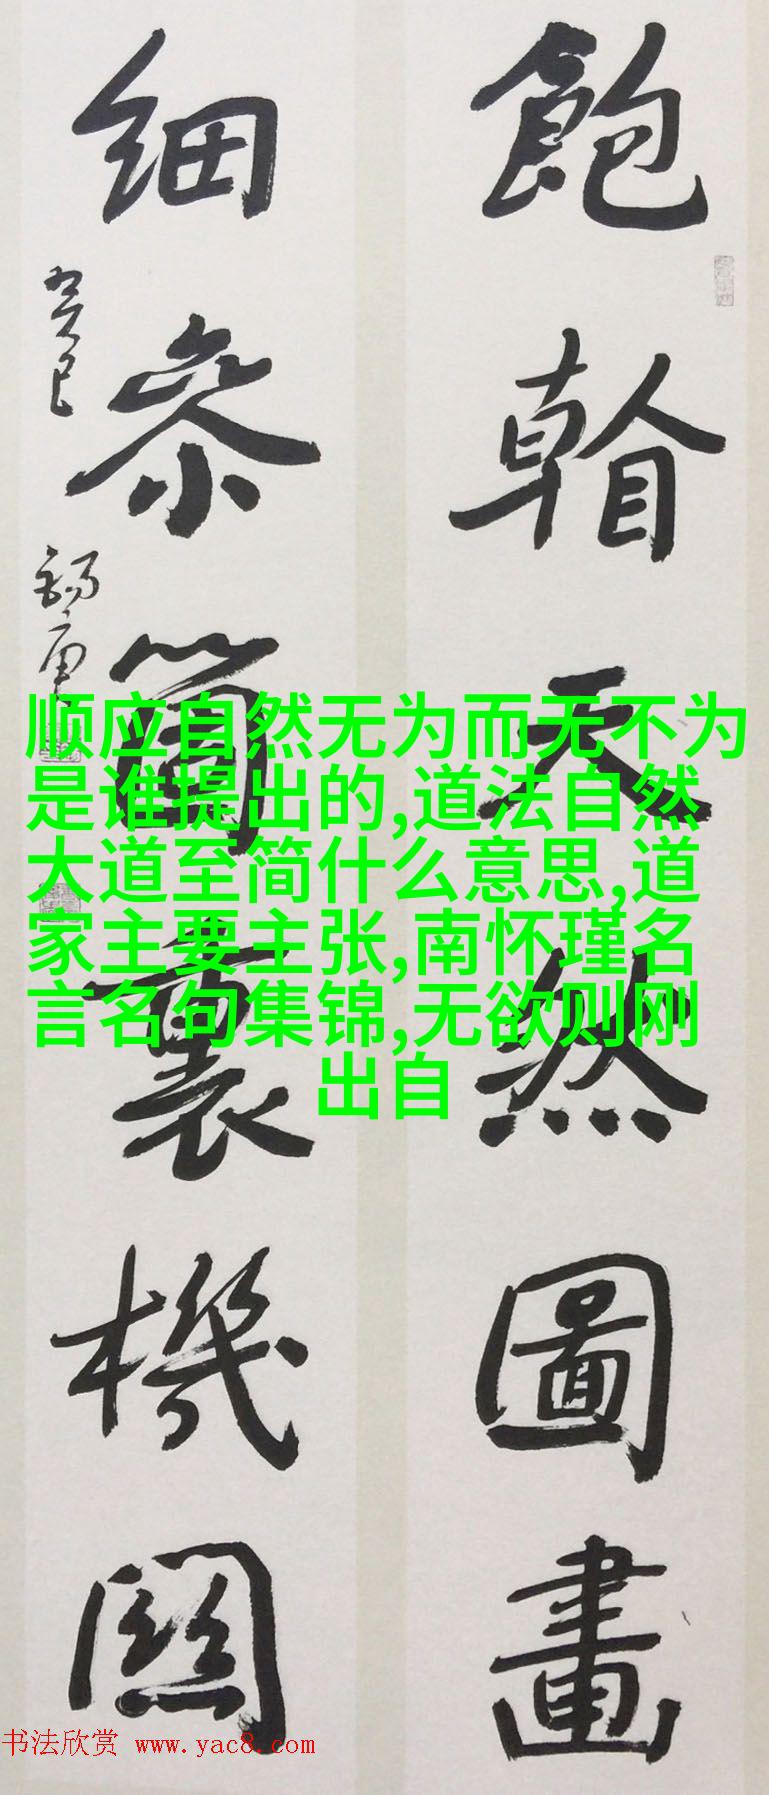 飽𥈠天然圖畫
細叅箇裏機關
癸巳
錫庚
顺应自然无为而无不为
是谁提出的,道法自然
大道至简什么意思,道
家主要主张,南怀瑾名
言名句集锦,无欲则刚
出自
书法欣赏 www.yac8.com